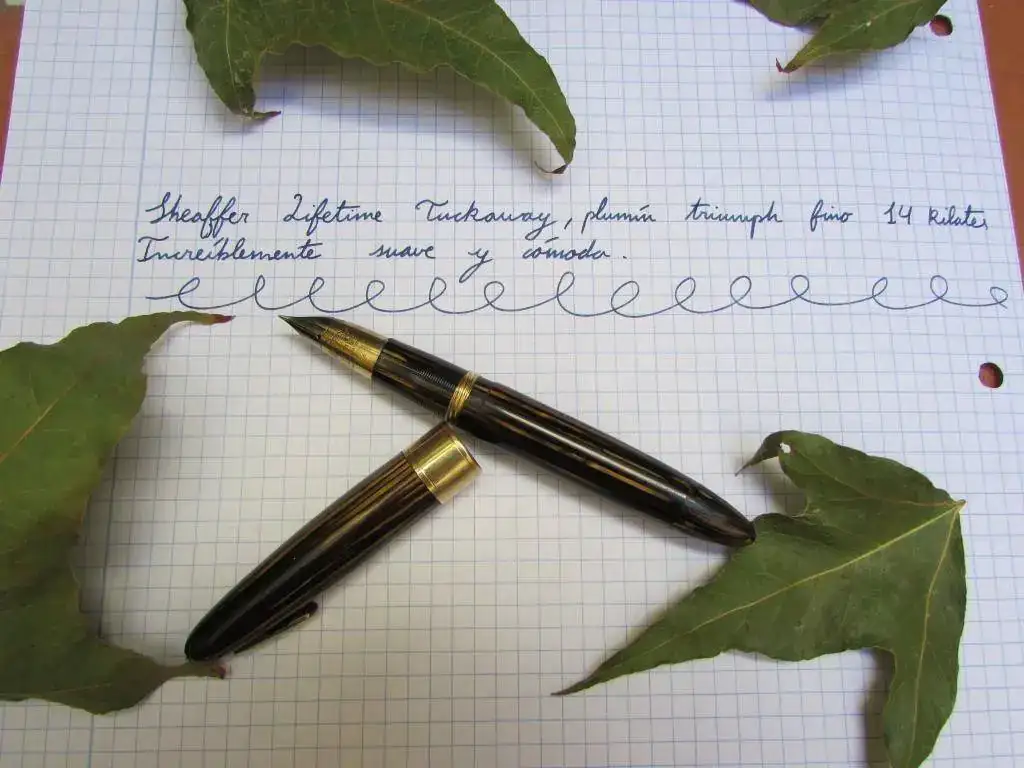 Sheaffer Lifetime Tuckaway, plumín triumph fino 14 kilates
Increíblemente suave y cómoda.